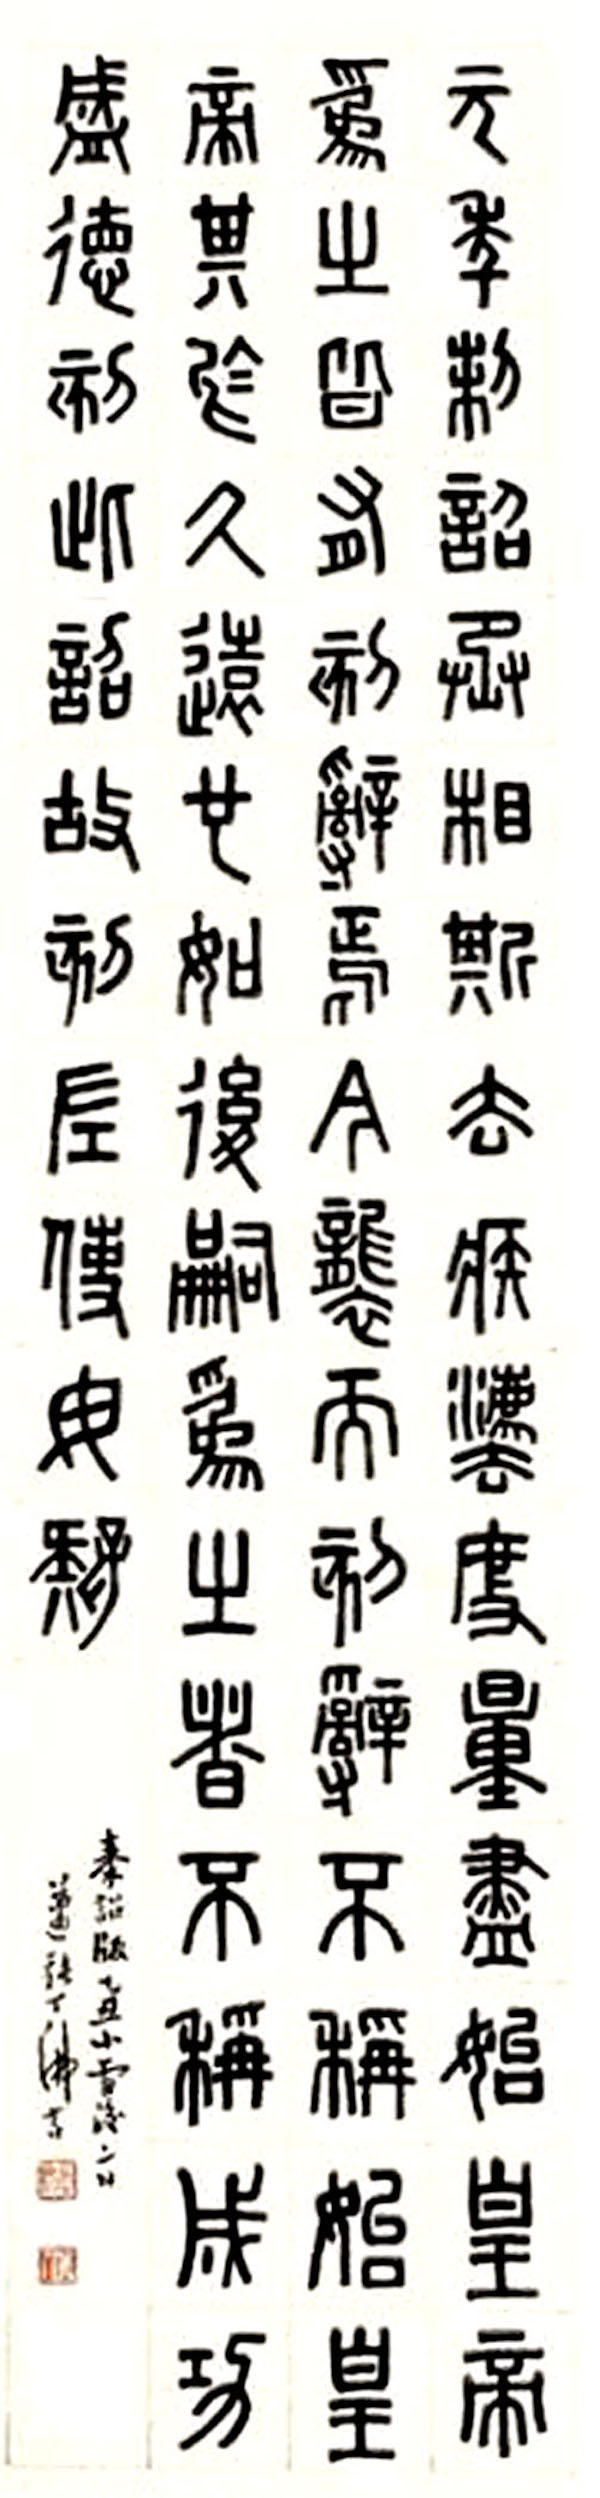 元年制詔丞相斯去疾灋度量盡始皇帝
爲之皆有刻辭焉今襲而刻辭不稱始皇
帝其於久遠也如後嗣爲之者不稱成功
盛德刻此詔故刻左使毋疑
秦詔版乙丑小雪後二日